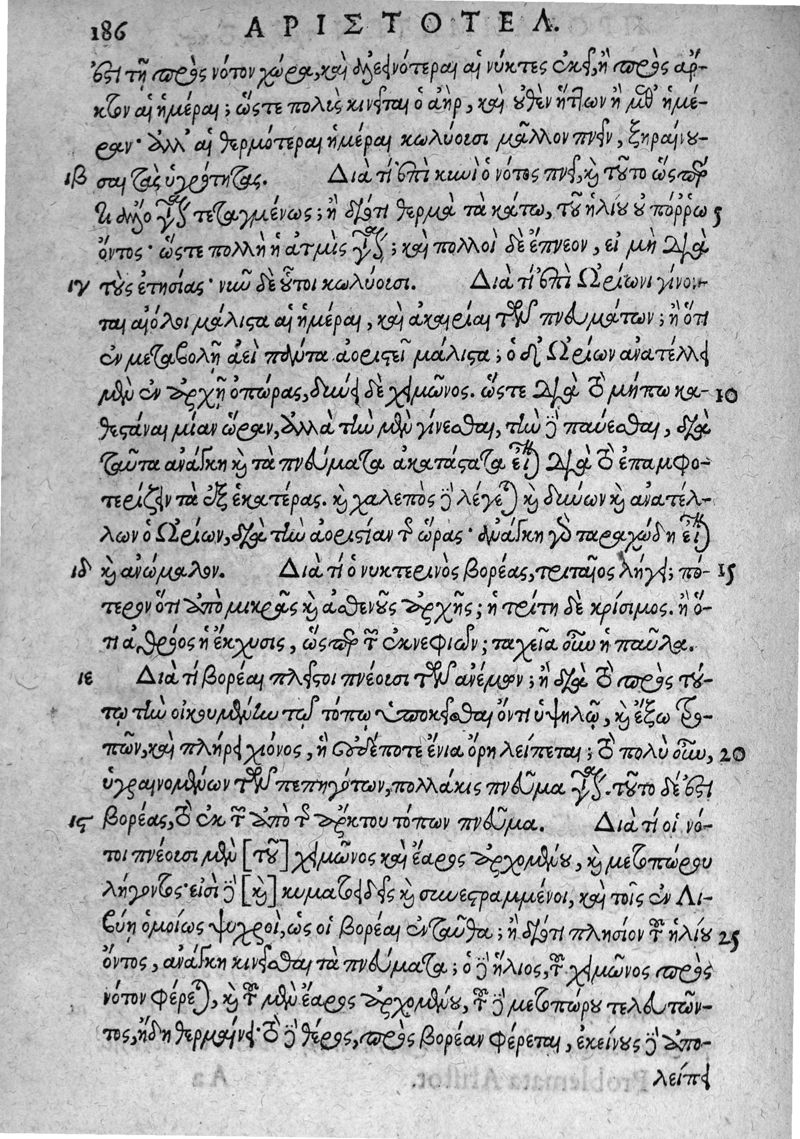 186 ΑΡΙΣΤΟΤΕΛ.
ἐστὶ τῇ πρὸς νότον χώρᾳ, καὶ ἀλεεινότεραι αἱ νύκτες ἐκεῖ, ἢ πρὸς ἄρ-
κτον αἱ ἡμέραι; ὥστε πολὺς κινεῖται ὁ ἀὴρ, καὶ οὐθὲν ἧττον ἢ μεθ' ἡμέ-
ραν· ἀλλ' αἱ θερμότεραι ἡμέραι κωλύουσι μᾶλλον πνεῖν, ξηραίνου-
ιβ σαι τὰς ὑγρότητας. Διὰ τί ἐπὶ κυνὶ ὁ νότος πνεῖ, καὶ τοῦτο ὥσπερ
τι ἄλλο γίνεται τεταγμένως; ἢ διότι θερμὰ τὰ κάτω, τοῦ ἡλίου οὐ πόῤῥω 5
ὄντος· ὥστε πολλὴ ἡ ἀτμὶς γίνεται; καὶ πολλοὶ δὲ ἔπνεον, εἰ μὴ διὰ
ιγ τοὺς ἐτησίας· νῦν δὲ οὗτοι κωλύουσι. Διὰ τί ἐπὶ Ὠρίωνι γίνον-
ται αἰόλοι μάλιστα αἱ ἡμέραι, καὶ ἀκαιρίαι τῶν πνευμάτων; ἢ ὅτι
ἐν μεταβολῇ ἀεὶ πάντα ἀοριστεῖ μάλιστα; ὁ δ' Ὠρίων ἀνατέλλει
μὲν ἐν ἀρχῇ ὀπώρας, δύνει δὲ χειμῶνος. ὥστε διὰ τὸ μήπω κα- 10
θεστάναι μίαν ὥραν, ἀλλὰ τὴν μὲν γίνεσθαι, τὴν δὲ παύεσθαι, διὰ
ταῦτα ἀνάγκη καὶ τὰ πνεύματα ἀκατάστατα εἶναι διὰ τὸ ἐπαμφο-
τερίζειν τὰ ἐξ ἑκατέρας. καὶ χαλεπὸς δὲ λέγεται καὶ δύνων καὶ ἀνατέλ-
λων ὁ Ὠρίων, διὰ τὴν ἀοριστίαν τῆς ὥρας· ἀνάγκη γὰρ ταραχώδη εἶναι
ιδ καὶ ἀνώμαλον. Διὰ τί ὁ νυκτερινὸς βορέας, τριταῖος λήγει; πό- 15
τερον ὅτι ἀπὸ μικρᾶς καὶ ἀσθενοῦς ἀρχῆς; ἡ τρίτη δὲ κρίσιμος. ἢ ὅ-
τι ἀθρόος ἡ ἔκχυσις, ὥσπερ τῶν ἐκνεφιῶν; ταχεῖα οὖν ἡ παῦλα.
ιε Διὰ τί βορέαι πλεῖστοι πνέουσι τῶν ἀνέμων; ἢ διὰ τὸ πρὸς τού-
τῳ τὴν οἰκουμένην τῷ τόπῳ ὑποκεῖσθαι ὄντι ὑψηλῷ, καὶ ἔξω τρο-
πῶν, καὶ πλήρει χιόνος, ἣ οὐδέποτε ἔνια ὄρη λείπεται; τὸ πολὺ οὖν, 20
ὑγραινομένων τῶν πεπηγότων, πολλάκις πνεῦμα γίνεται. τοῦτο δέ ἐστι
ις βορέας, τὸ ἐκ τῶν ἀπὸ τῆς ἄρκτου τόπων πνεῦμα. Διὰ τί οἱ νό-
τοι πνέουσι μὲν [τοῦ] χειμῶνος καὶ ἔαρος ἀρχομένου, καὶ μετοπώρου
λήγοντος· εἰσὶ δὲ [καὶ] κυματοειδεῖς καὶ συνεστραμμένοι, καὶ τοῖς ἐν Λι-
βύῃ ὁμοίως ψυχροὶ, ὡς οἱ βορέαι ἐνταῦθα; ἢ διότι πλησίον τοῦ ἡλίου 25
ὄντος, ἀνάγκη κινεῖσθαι τὰ πνεύματα; ὁ δὲ ἥλιος, τοῦ χειμῶνος πρὸς
νότον φέρεται, καὶ τοῦ μὲν ἔαρος ἀρχομένου, τοῦ δὲ μετοπώρου τελευτῶν-
τος, ἤδη θερμαίνει· τὸ δὲ θέρος, πρὸς βορέαν φέρεται, ἐκείνους δὲ ἀπο-
λείπει